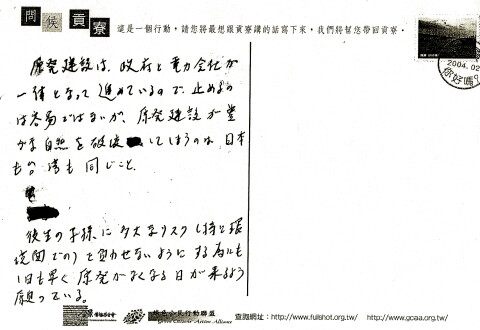 問候貢寮
這是一個行動，請您將最想跟貢寮講的話寫下來，我們將幫您帶回貢寮。
2004.02
你好嗎
原発建設は、政府と電力会社が
一体となって進めているので、止めるの
は容易ではないが、原発建設が豊
かな自然を破壊してしまうのは、日本
も台湾も同じこと。
後世の子孫に多大なリスク(特に環
境面での)を負わせないようにする為にも
1日も早く原発がなくなる日が来るよう
願っている。
綠色公民行動聯盟
Green Citizens' Action Alliance
查詢網址：http://www.fullshot.org.tw/ http://www.gcaa.org.tw/